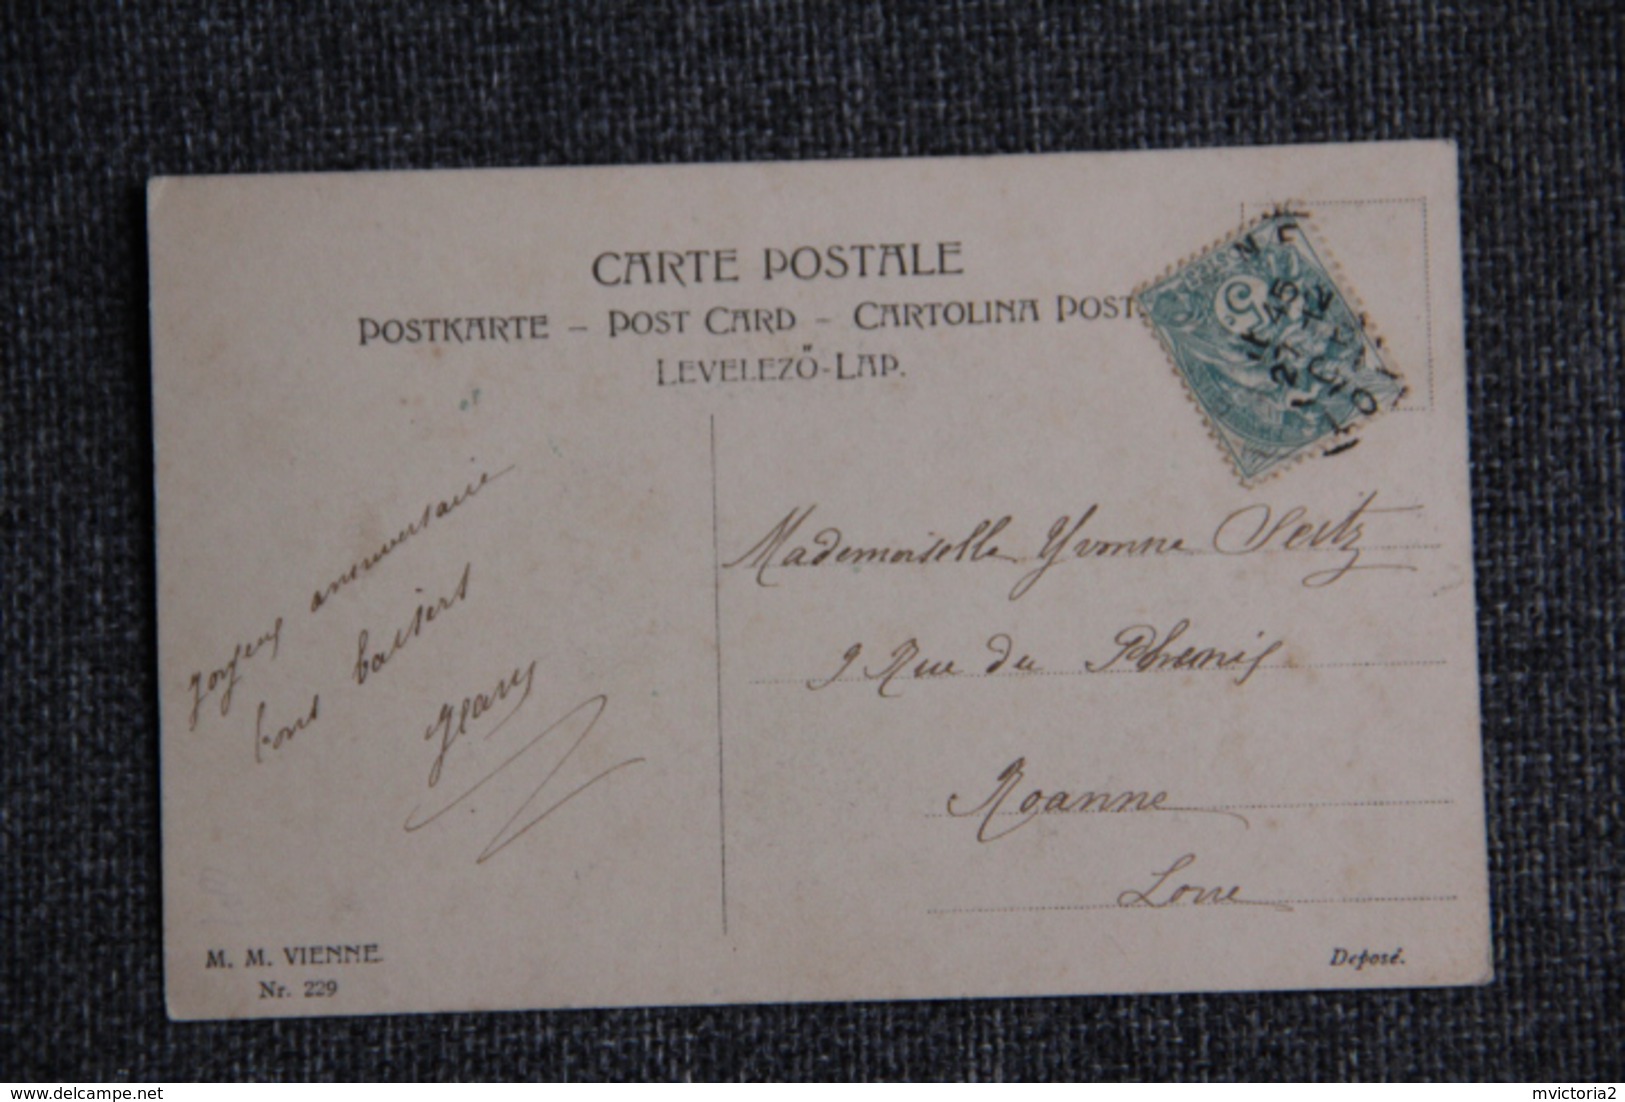 CARTE POSTALE
POSTKARTE – POST CARD – CARTOLINA POST
LEVELEZŐ-LAP.
anniversaire
bons baisers
Mademoiselle Yvonne Seitz
9 Rue du Phenix
Roanne
Loire
M. M. VIENNE
Nr. 229
Deposé.
delcampe.net
mvictoria2